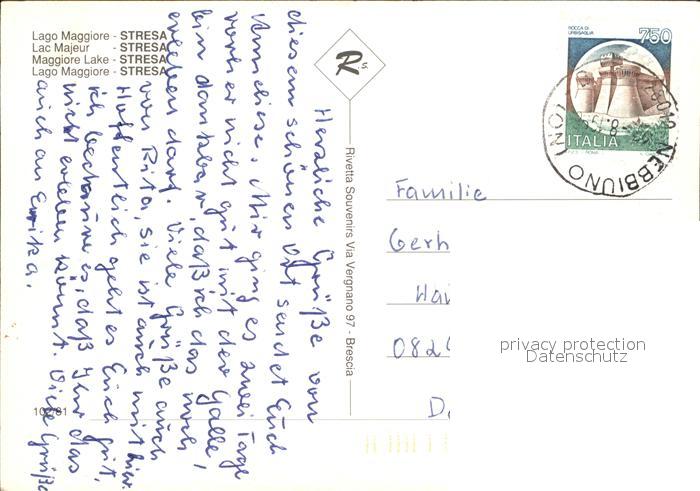 Lago Maggiore - STRESA
Lac Majeur - STRESA
Maggiore Lake - STRESA
Lago Maggiore - STRESA
R's
ROCCA DI URBISAGLIA
750
ITALIA
NEBBIUNO (NO)
Herzliche Grüße von
diesem schönen Ort sendet Euch
Anneliese. Mir ging es zwei Tage
vorher nicht gut mit der Galle,
bin dankbar, daß ich das noch
erleben darf. Viele Grüße auch
von Rita, sie ist auch mit hier.
Hoffentlich geht es Euch gut.
Ich bedaure es, daß Ihr das
nicht erleben könnt. Viele Grüße
auch an Erika.
Rivetta Souvenirs Via Vergnano 97 - Brescia
Familie
Gerh
Hai
082
D
privacy protection
Datenschutz
102/81